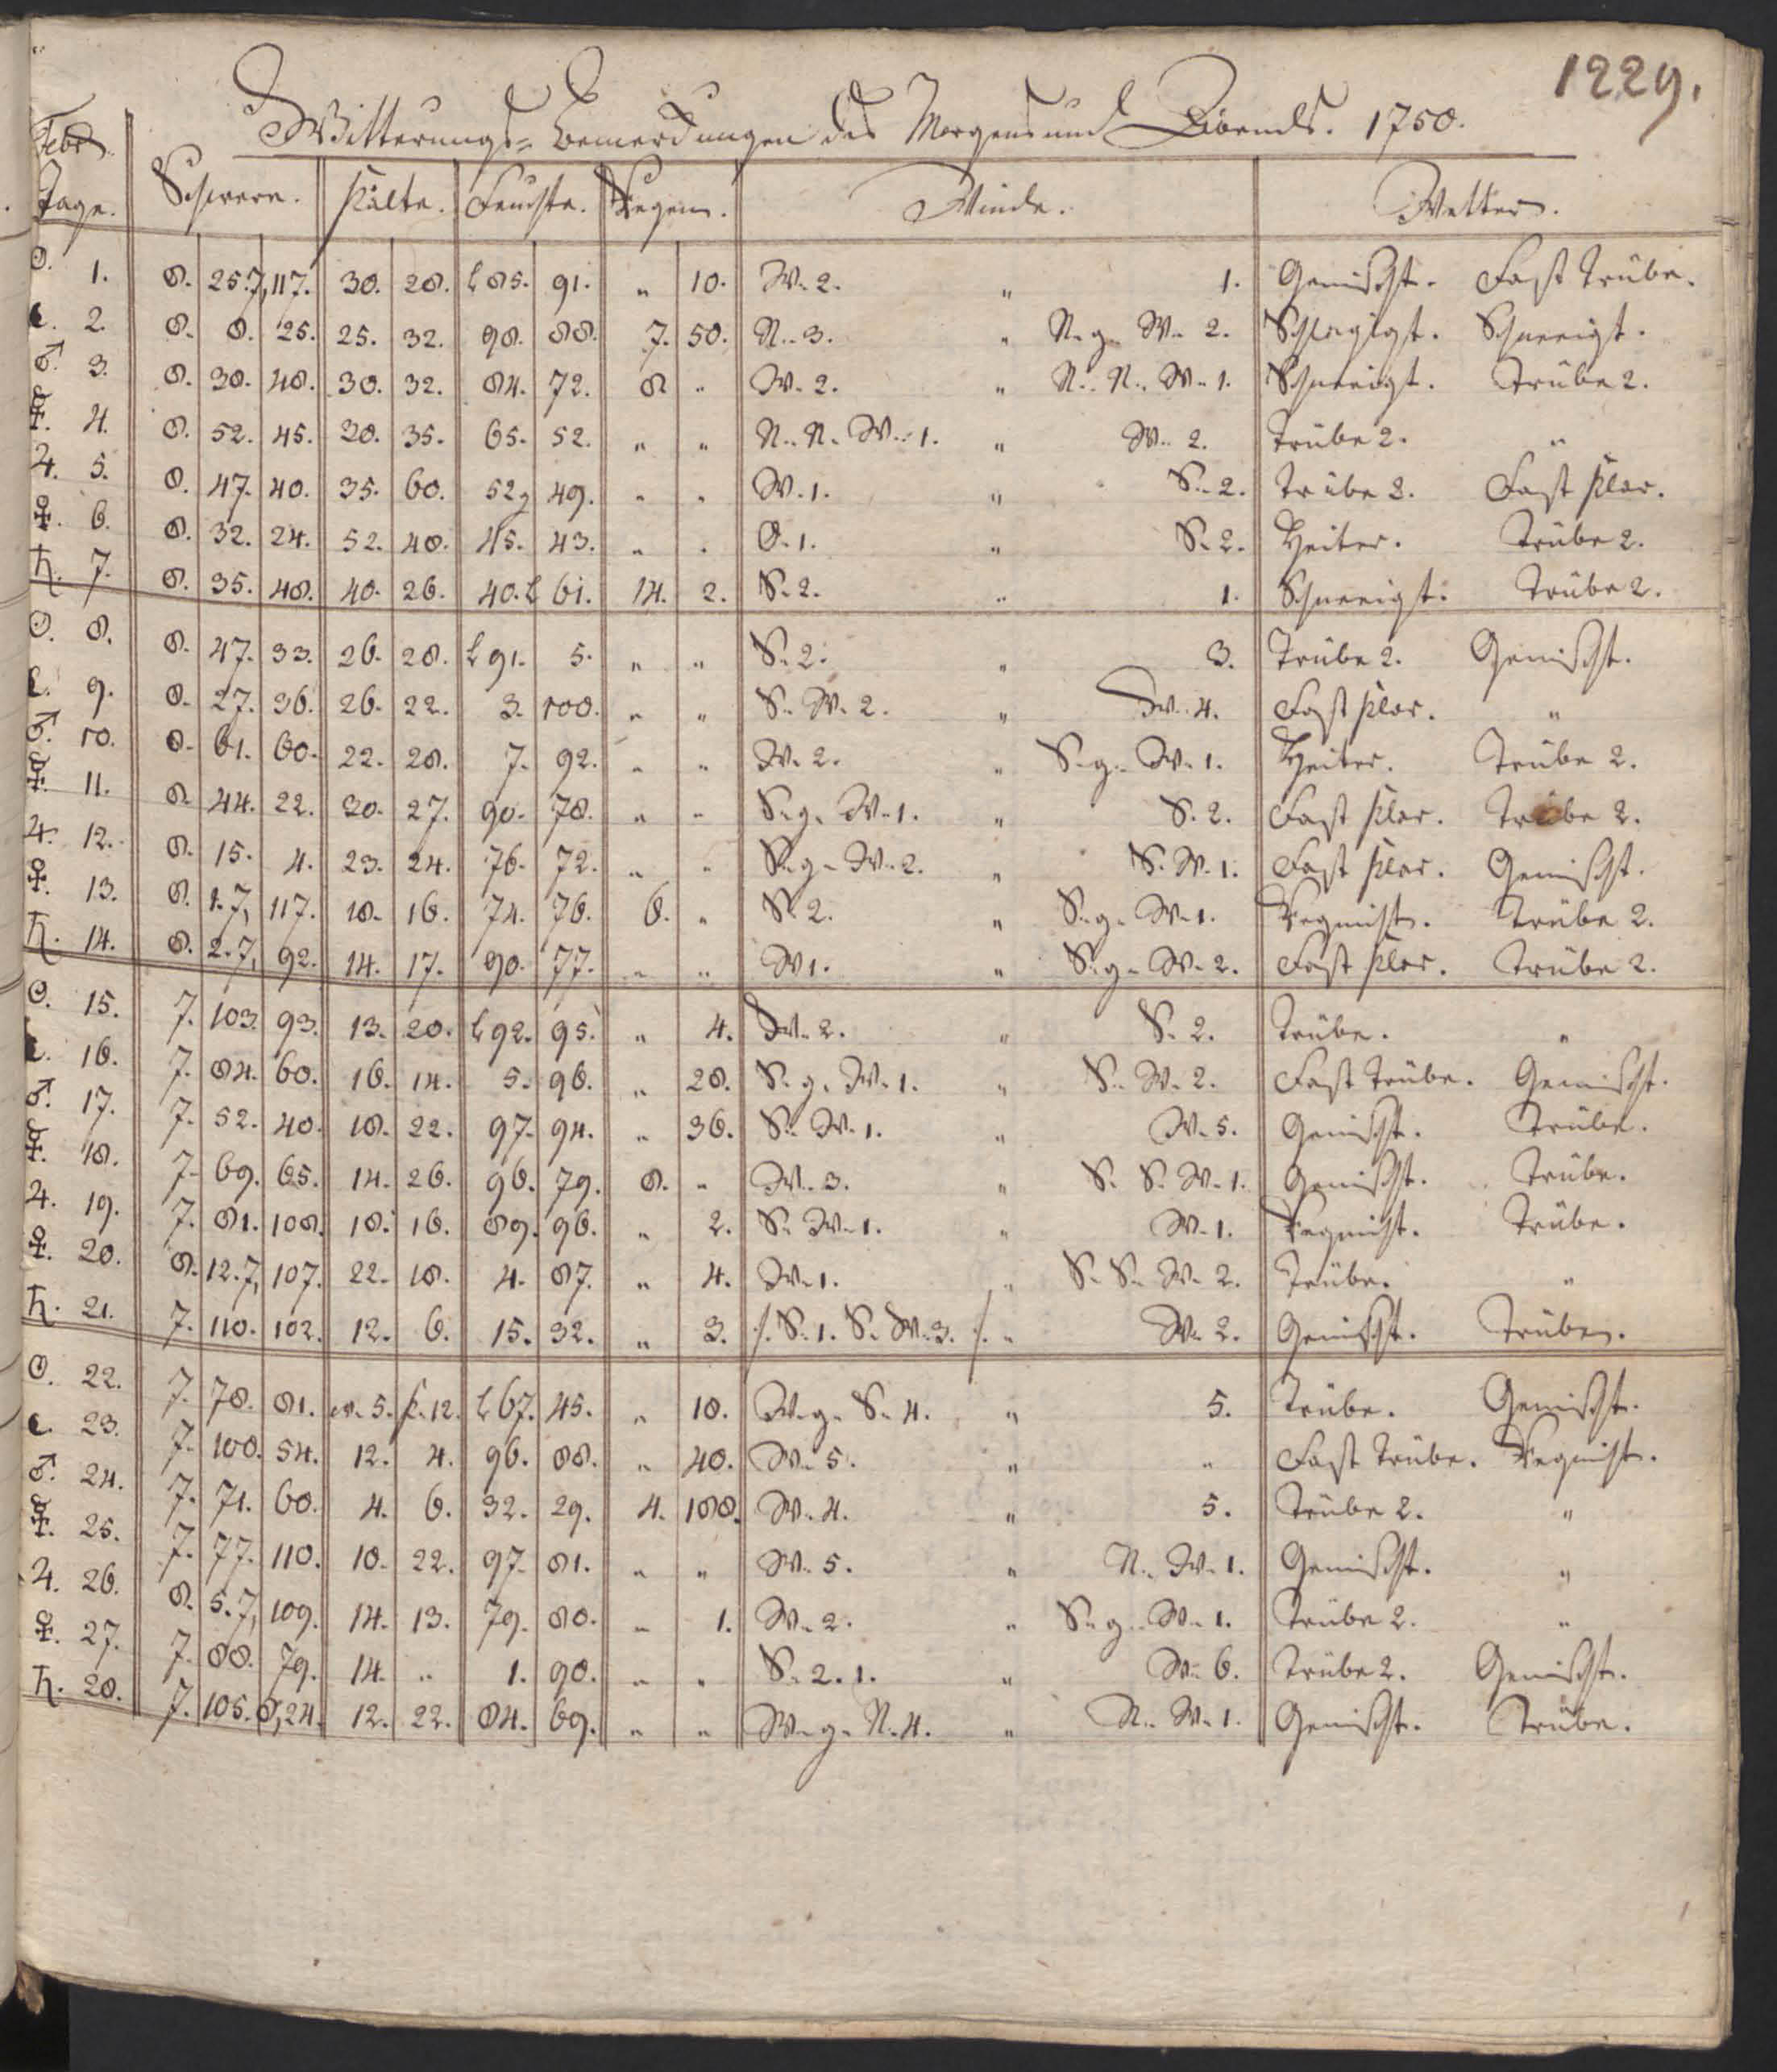 1229.
Witterungs-Bemerckungen des Morgens und Abends. 1750.
Febr.
Tage. Schwere. Kälte. Feuchte. Regen. Winde. Wetter.
☉. 1. 8. 25.7, 117. 30. 28. L 85. 91. " 10. W. 2. " 1. Gemischt. Fast Trübe.
☾. 2. 8. 8. 25. 25. 32. 98. 88. 7. 50. N. 3. " N. g. W. 2. Schneeigt.
♂. 3. 8. 38. 48. 30. 32. 84. 72. 8. " W. 2. " N. N. W. 1. Schneeigt. Trübe 2.
☿. 4. 8. 52. 45. 28. 35. 65. 52. " " N. N. W. 1. " W. 2. Trübe 2. "
♃. 5. 8. 47. 40. 35. 60. 52 49. " " W. 1. " S. 2. Trübe 2. Fast Klar.
♀. 6. 8. 32. 24. 52. 48. 45. 43. " " O. 1. " S. 2. Heiter. Trübe 2.
♄. 7. 8. 35. 48. 40. 26. 40. L 61. 14. 2. S. 2. " 1. Schneeigt. Trübe 2.
☉. 8. 8. 47. 33. 26. 28. L 91. 5. " " S. 2. " 3. Trübe 2. Gemischt.
☾. 9. 8. 27. 36. 26. 22. 3. 100. " " S. W. 2. " W. 4. Fast Klar. "
♂. 10. 8. 61. 60. 22. 28. 7. 92. " " W. 2. " S. g. W. 1. Heiter. Trübe 2.
☿. 11. 8. 44. 22. 30. 27. 90. 78. " " S. g. W. 1. " S. 2. Fast Klar. Trübe 2.
♃. 12. 8. 15. 4. 23. 24. 76. 72. " " S. g. W. 2. " S. W. 1. Fast Klar. Gemischt.
♀. 13. 8. 1.7, 117. 18. 16. 74. 76. 6. " S. 2. " S. g. W. 1. Regnicht. Trübe 2.
♄. 14. 8. 2.7, 92. 14. 17. 90. 77. " " W 1. " S. g. W. 2. Fast Klar. Trübe 2.
☉. 15. 7. 103. 93. 13. 20. L 92. 95. " 4. W. 2. " S. 2. Trübe. "
☾. 16. 7. 84. 60. 16. 14. 5. 96. " 28. S. g. W. 1. " S. W. 2. Fast Trübe. Gemischt.
♂. 17. 7. 52. 40. 18. 22. 97. 94. " 36. S. W. 1. " W. 5. Gemischt. Trübe.
☿. 18. 7. 69. 65. 14. 26. 96. 79. 8. " W. 3. " S. S. W. 1. Gemischt. Trübe.
♃. 19. 7. 81. 108. 18. 16. 89. 96. " 2. S. W. 1. " W. 1. Regnicht. Trübe.
♀. 20. 8. 12.7, 107. 22. 18. 4. 87. " 4. W. 1. " S. S. W. 2. Trübe. "
♄. 21. 7. 110. 102. 12. 6. 15. 32. " 3. /. S. 1. S. W. 3. /. " W. 2. Gemischt. Trübe.
☉. 22. 7. 78. 81. w. 5. k. 12. L 67. 45. " 10. W. g. S. 4. " 5. Trübe. Gemischt.
☾. 23. 7. 100. 54. 12. 4. 96. 88. " 40. W. 5. " " Fast Trübe. Regnicht.
♂. 24. 7. 71. 60. 4. 6. 32. 29. 4. 188. W. 4. " 5. Trübe 2. "
☿. 25. 7. 77. 110. 10. 22. 97. 81. " " W. 5. " N. W. 1. Gemischt. "
♃. 26. 8. 5.7, 109. 14. 13. 79. 80. " 1. W. 2. " S. g. W. 1. Trübe 2. "
♀. 27. 7. 88. 79. 14. " 1. 90. " " S. 2. 1. " W. 6. Trübe 2. Gemischt.
♄. 28. 7. 105. 8,24. 12. 22. 84. 69. " " W. g. N. 4. " N. W. 1. Gemischt. Trübe.